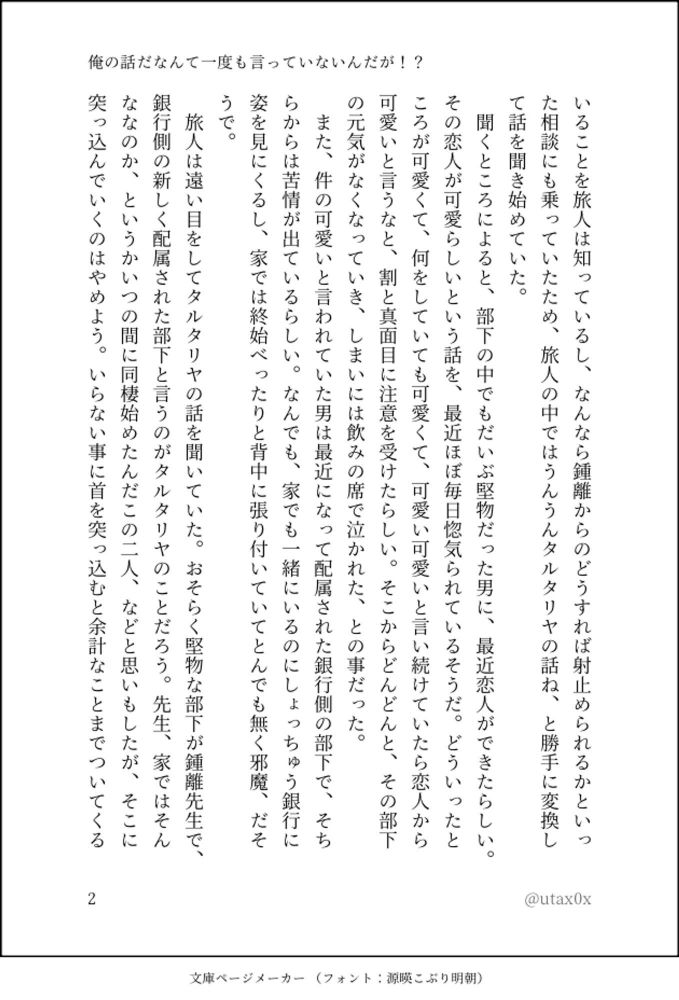 俺の話だなんて一度も言っていないんだが！？
いることを旅人は知っているし、なんなら鍾離からのどうすれば射止められるかといっ
た相談にも乗っていたため、旅人の中ではうんうんタルタリヤの話ね、と勝手に変換し
て話を聞き始めていた。
聞くところによると、部下の中でもだいぶ堅物だった男に、最近恋人ができたらしい。
その恋人が可愛らしいという話を、最近ほぼ毎日惚気られているそうだ。どういったと
ころが可愛くて、何をしていても可愛くて、可愛い可愛いと言い続けていたら恋人から
可愛いと言うなと、割と真面目に注意を受けたらしい。そこからどんどんと、その部下
の元気がなくなっていき、しまいには飲みの席で泣かれた、との事だった。
また、件の可愛いと言われていた男は最近になって配属された銀行側の部下で、そち
らからは苦情が出ているらしい。なんでも、家でも一緒にいるのにしょっちゅう銀行に
姿を見にくるし、家では終始べったりと背中に張り付いていてとんでも無く邪魔、だそ
うで。
旅人は遠い目をしてタルタリヤの話を聞いていた。おそらく堅物な部下が鍾離先生で、
銀行側の新しく配属された部下と言うのがタルタリヤのことだろう。先生、家ではそん
ななのか、というかいつの間に同棲始めたんだこの二人、などと思いもしたが、そこに
突っ込んでいくのはやめよう。いらない事に首を突っ込むと余計なことまでついてくる
2
@utax0x
文庫ページメーカー （フォント：源暎こぶり明朝）